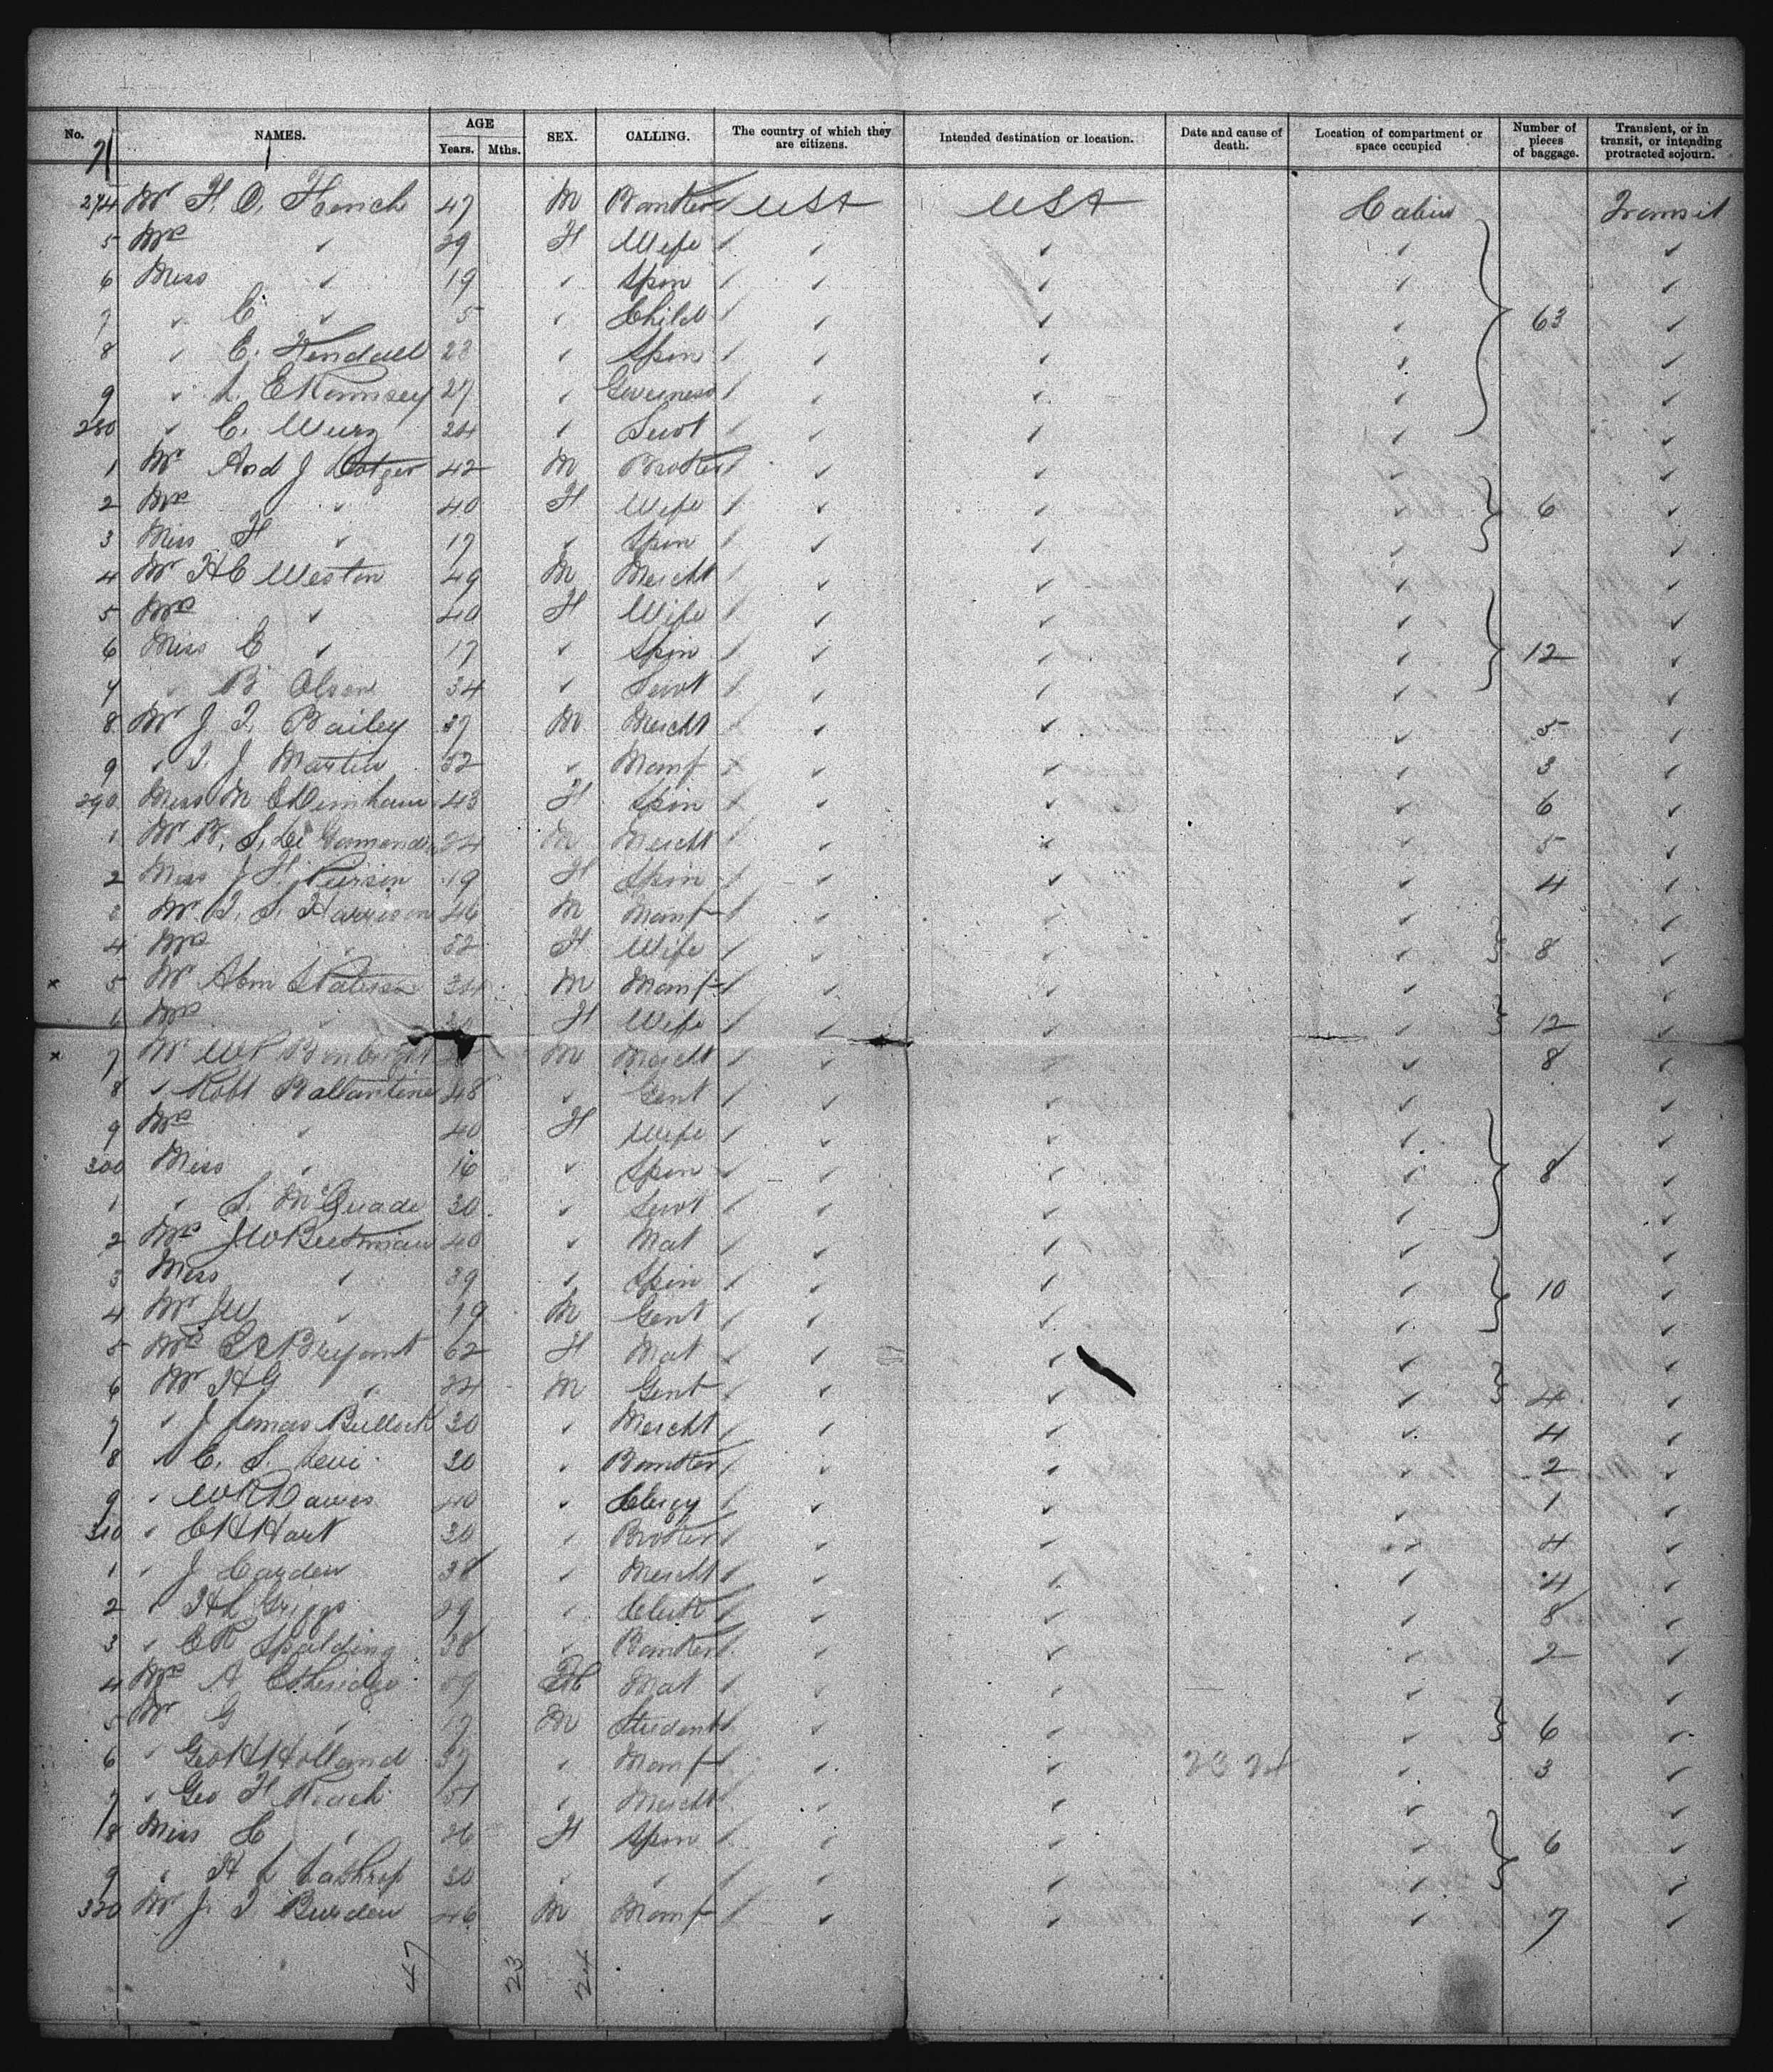 No. NAMES. AGE Years. Mths. SEX. CALLING. The country of which they are citizens. Intended destination or location. Date and cause of death. Location of compartment or space occupied Number of pieces of baggage. Transient, or in transit, or intending protracted sojourn.
274 Mr H. O. 47 M Banker USA USA Cabin Transit
5 Mrs ✓ 29 F Wife ✓ ✓ ✓ ✓ ✓
6 Miss ✓ 19 ✓ Spin ✓ ✓ ✓ ✓ ✓
7 ✓ E ✓ 5 ✓ Child ✓ ✓ ✓ ✓ 63 ✓
8 ✓ E. Kendall 28 ✓ Spin ✓ ✓ ✓ ✓ ✓
9 ✓ L. E Ramsey 27 ✓ Governess ✓ ✓ ✓ ✓ ✓
280 ✓ C. Wurz 24 ✓ Servt ✓ ✓ ✓ ✓ ✓
1 Mr And J 42 M Broker ✓ ✓ ✓ ✓ ✓
2 Mrs ✓ 40 F Wife ✓ ✓ ✓ ✓ 6 ✓
3 Miss F ✓ 17 ✓ Spin ✓ ✓ ✓ ✓ ✓
4 Mr H C Weston 49 M Mercht ✓ ✓ ✓ ✓ ✓
5 Mrs ✓ 40 F Wife ✓ ✓ ✓ ✓ ✓
6 Miss E ✓ 17 ✓ Spin ✓ ✓ ✓ ✓ 12 ✓
7 ✓ B Olson 34 ✓ Servt ✓ ✓ ✓ ✓ ✓
8 Mr J. T. Bailey 37 M Mercht ✓ ✓ ✓ ✓ 5 ✓
9 ✓ T. J. Martin 52 ✓ Manf ✓ ✓ ✓ ✓ 3 ✓
290 Miss M 43 F Spin ✓ ✓ ✓ ✓ 6 ✓
1 Mr B. S. De 24 M Mercht ✓ ✓ ✓ ✓ 5 ✓
2 Miss J H Pierson 19 F Spin ✓ ✓ ✓ ✓ 4 ✓
3 Mr T. S. Harrison 46 M Manf ✓ ✓ ✓ ✓ ✓
4 Mrs ✓ 52 F Wife ✓ ✓ ✓ ✓ 8 ✓
x 5 Mr Abm 34 M Manf ✓ ✓ ✓ ✓ ✓
6 Mrs F Wife ✓ ✓ ✓ ✓ 12 ✓
x 7 Mr W P M Mercht ✓ ✓ ✓ ✓ 8 ✓
8 ✓ Robt Ballantine 48 ✓ Gent ✓ ✓ ✓ ✓ ✓
9 Mrs ✓ 40 F Wife ✓ ✓ ✓ ✓ ✓
300 Miss ✓ 16 ✓ Spin ✓ ✓ ✓ ✓ 8 ✓
1 ✓ S. McQuade 30 ✓ Servt ✓ ✓ ✓ ✓ ✓
2 Mrs J W Beekman 40 ✓ Mat ✓ ✓ ✓ ✓ ✓
3 Miss ✓ 39 ✓ Spin ✓ ✓ ✓ ✓ 10 ✓
4 Mr J W ✓ 19 M Gent ✓ ✓ ✓ ✓ ✓
5 Mrs E C Bryant 62 F Mat ✓ ✓ ✓ ✓ ✓
6 Mr H G ✓ 24 M Gent ✓ ✓ ✓ ✓ 4 ✓
7 ✓ J James Bullock 30 ✓ Mercht ✓ ✓ ✓ ✓ 4 ✓
8 ✓ C. S. Levi 30 ✓ Banker ✓ ✓ ✓ ✓ 2 ✓
9 ✓ W R Dawes 40 ✓ Clergy ✓ ✓ ✓ ✓ 1 ✓
310 ✓ C H Hart 30 ✓ Broker ✓ ✓ ✓ ✓ 4 ✓
1 ✓ J Carden 38 ✓ Mercht ✓ ✓ ✓ ✓ 4 ✓
2 ✓ H L Griggs 29 ✓ Clerk ✓ ✓ ✓ ✓ 8 ✓
3 ✓ E R Spalding 38 ✓ Banker ✓ ✓ ✓ ✓ 2 ✓
4 Mrs A Etheridge 59 F Mat ✓ ✓ ✓ ✓ ✓
5 Mr G ✓ 17 M Student ✓ ✓ ✓ ✓ 6 ✓
6 ✓ Geo H Holland 37 ✓ Manf ✓ ✓ ✓ 23 24 ✓ 3 ✓
7 ✓ Geo H Roach 51 ✓ Mercht ✓ ✓ ✓ ✓ ✓
8 Miss C ✓ 26 F Spin ✓ ✓ ✓ ✓ 6 ✓
9 ✓ H L Lathrop 30 ✓ ✓ ✓ ✓ ✓ ✓ ✓
320 Mr J. T. Burden 46 M Manf ✓ ✓ ✓ ✓ 7 ✓
47 23 24